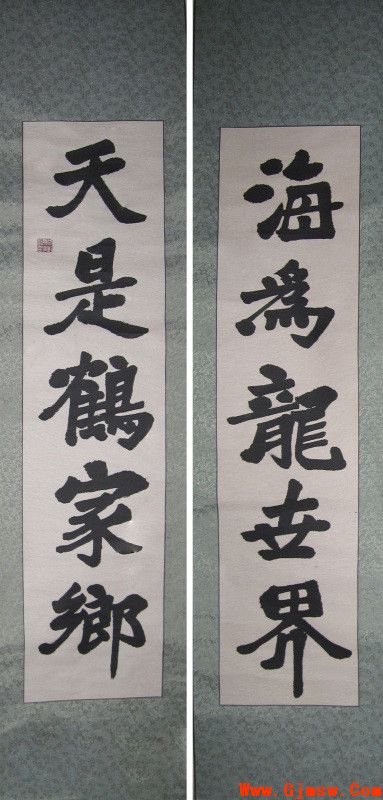 海為龍世界
天是鶴家鄉
Www.Gjmsw.Com